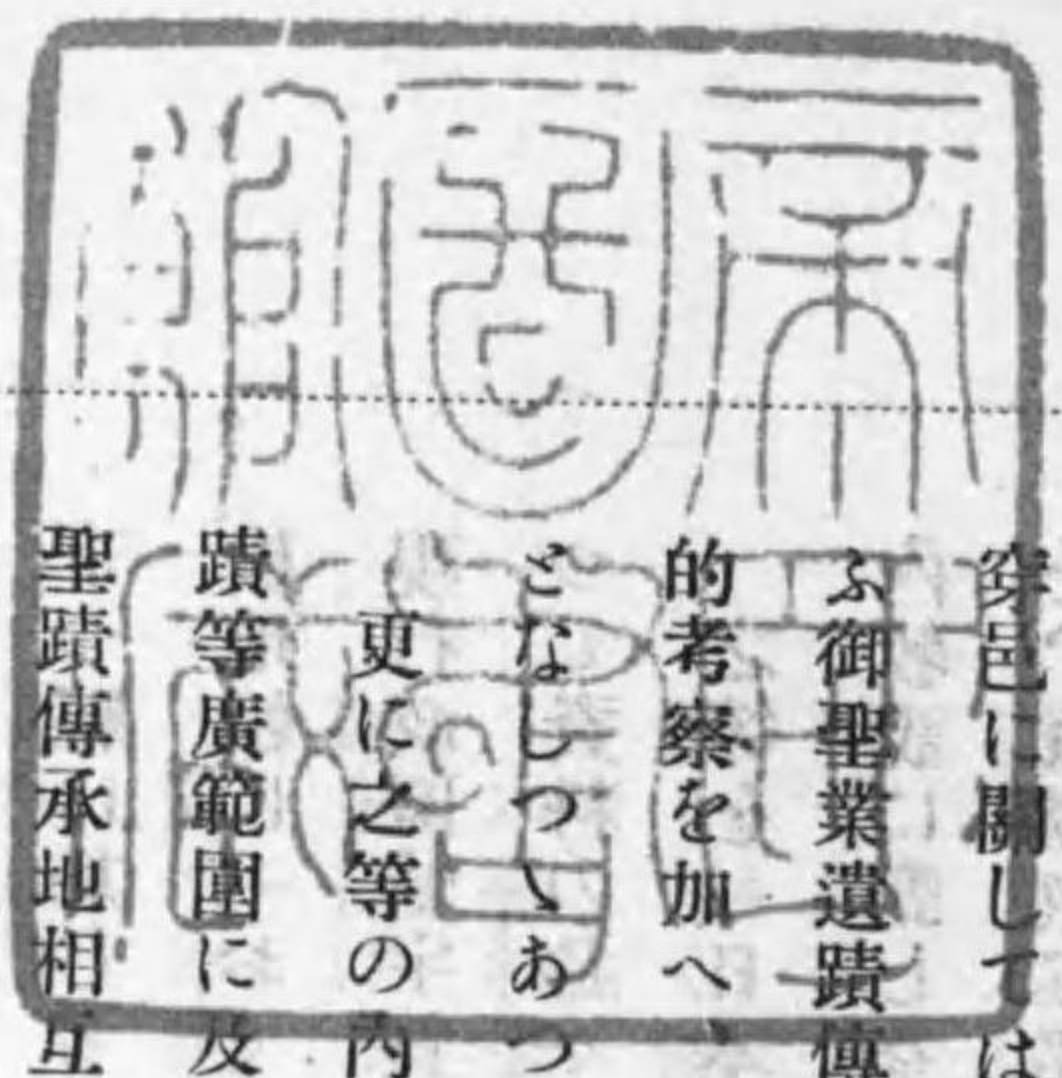 帝國圖書館藏
穿邑に關しては
ふ御聖業遺蹟傳
的考察を加へ、
となしつゝあつ
更に之等の内
蹟等廣範圍に及
聖蹟傳承地相互